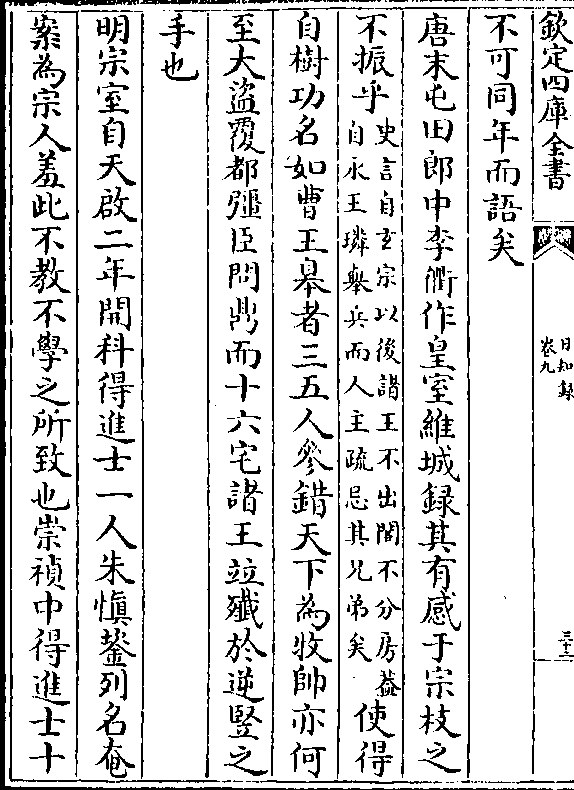 欽定四庫全書
日知錄
卷九
三十二
不可同年而語矣
唐末屯田郎中李衢作皇室維城録其有感于宗枝之
不振乎史言自玄宗以後諸王不出閤不分房葢
自永王璘舉兵而人主疏忌其兄弟矣使得
自樹功名如曹王皋者三五人參錯天下為牧帥亦何
至大盜覆都彊臣問鼎而十六宅諸王竝殱於逆竪之
手也
明宗室自天啟二年開科得進士一人朱慎鍳列名奄
案為宗人羞此不教不學之所致也崇禎中得進士十